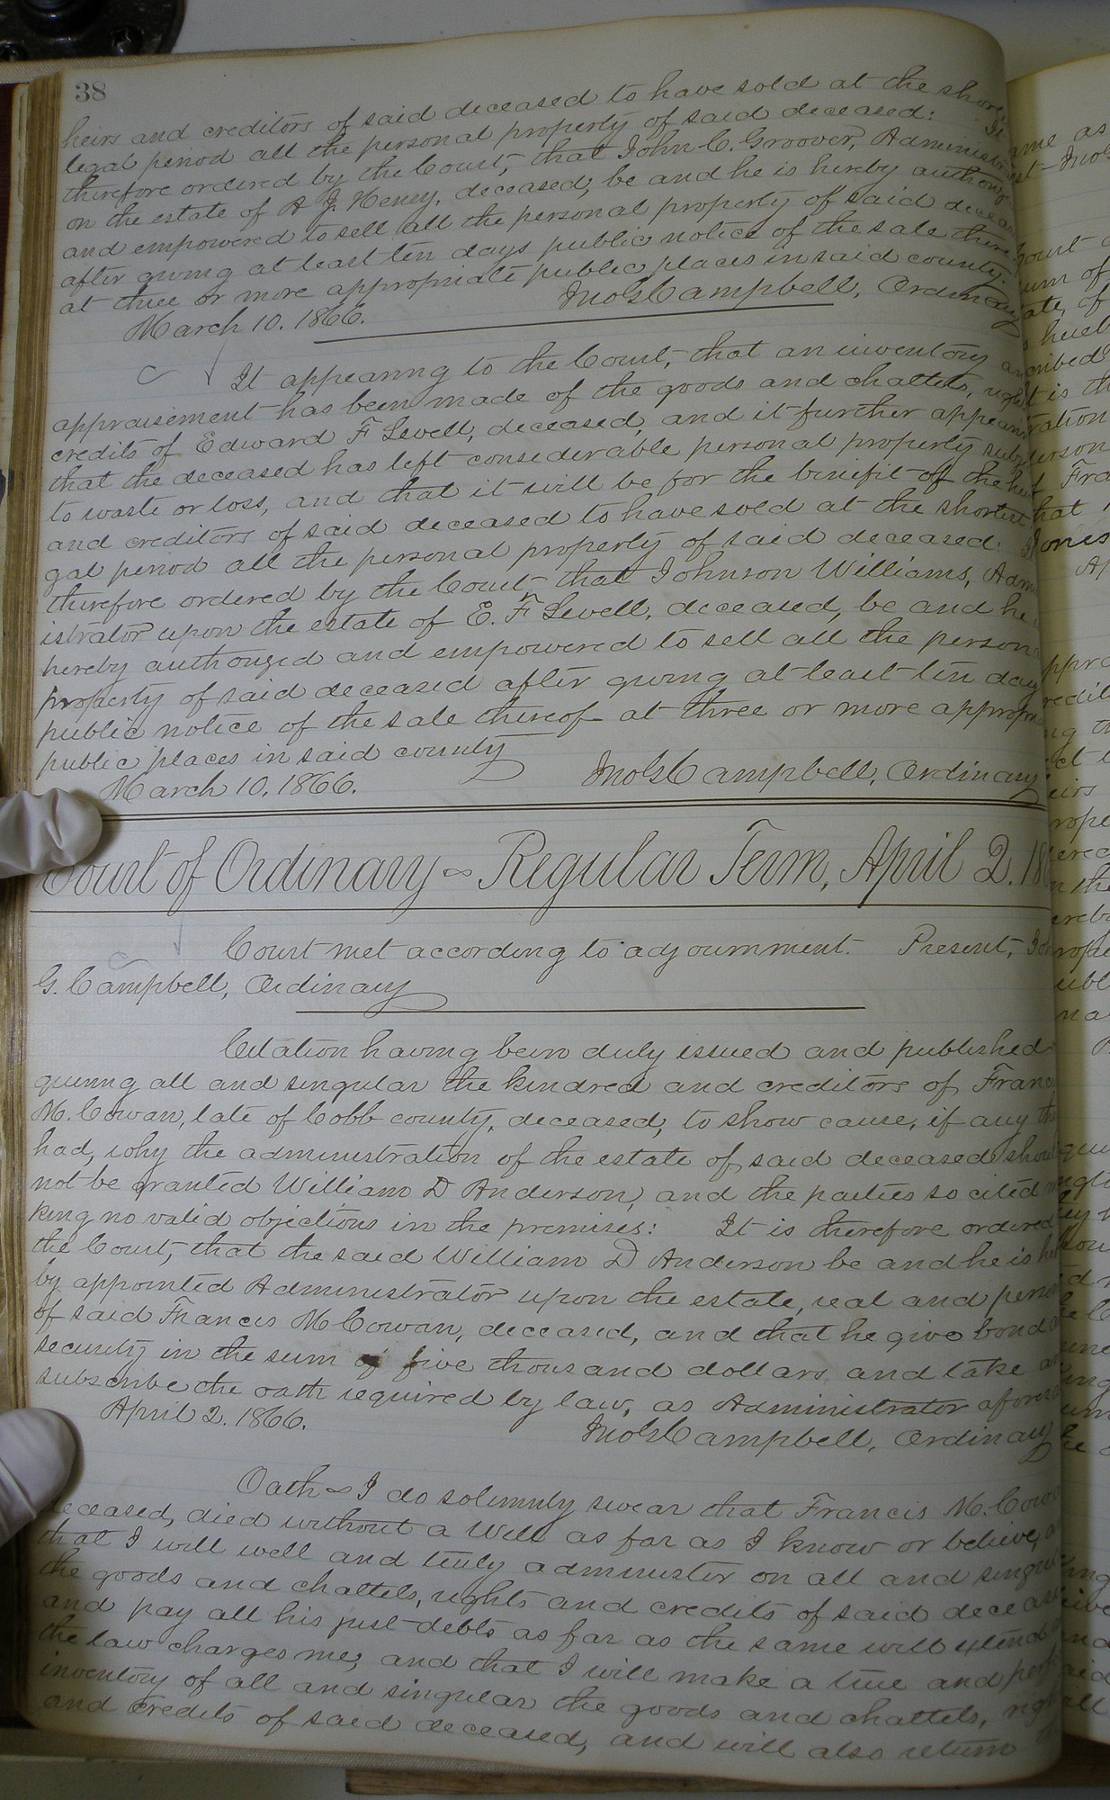 38
heirs and creditors of said deceased to have sold at the shortest
legal period all the personal property of said deceased: It
therefore ordered by the Court, that John C. Groover, Administr
on the estate of A J. Heney, deceased, be and he is hereby authoriz
and empowered to sell all the personal property of said decea
after giving at least ten days public notice of the sale there
at three or more appropriate public places in said county.
March 10. 1866. Jno G Campbell, Ordinary
It appearing to the Court, that an inventory an
appraisement has been made of the goods and chattels, right
credits of Edward F Sewell, deceased, and it further appears
that the deceased has left considerable personal property subj
to waste or loss, and that it will be for the benefit of the heir
and creditors of said deceased to have sold at the shortest
gal period all the personal property of said deceased:
therefore ordered by the Court that Johnson Williams, Adm
istrator upon the estate of E. F Sewell, deceased, be and he
hereby authorized and empowered to sell all the person
property of said deceased after giving at least ten day
public notice of the sale thereof at three or more appropri
public places in said county
March 10. 1866. Jno G Campbell, Ordinary
Court of Ordinary ~ Regular Term, April 2. 18
Court met according to adjournment. Present, Jo
G. Campbell, Ordinary
Citation having been duly issued and published
quiring all and singular the kindred and creditors of Franc
M. Cowan, late of Cobb county, deceased, to show cause, if any the
had, why the administration of the estate of said deceased shoul
not be granted William D Anderson, and the parties so cited
king no valid objections in the premises: It is therefore ordered
the Court, that the said William D Anderson be and he is he
by appointed Administrator upon the estate, real and person
of said Francis M Cowan, deceased, and that he give bond a
security in the sum of five thousand dollars and take a
subscribe the oath required by law, as Administrator aforesa
April 2. 1866. Jno G Campbell, Ordinary
Oath ~ I do solemnly swear that Francis M. Cowa
deceased, died without a Will as far as I know or believe, a
that I will well and truly administer on all and singul
the goods and chattels, rights and credits of said deceas
and pay all his just debts as far as the same will extend
the law charges me, and that I will make a true and perf
inventory of all and singular the goods and chattels, righ
and credits of said deceased, and will also return